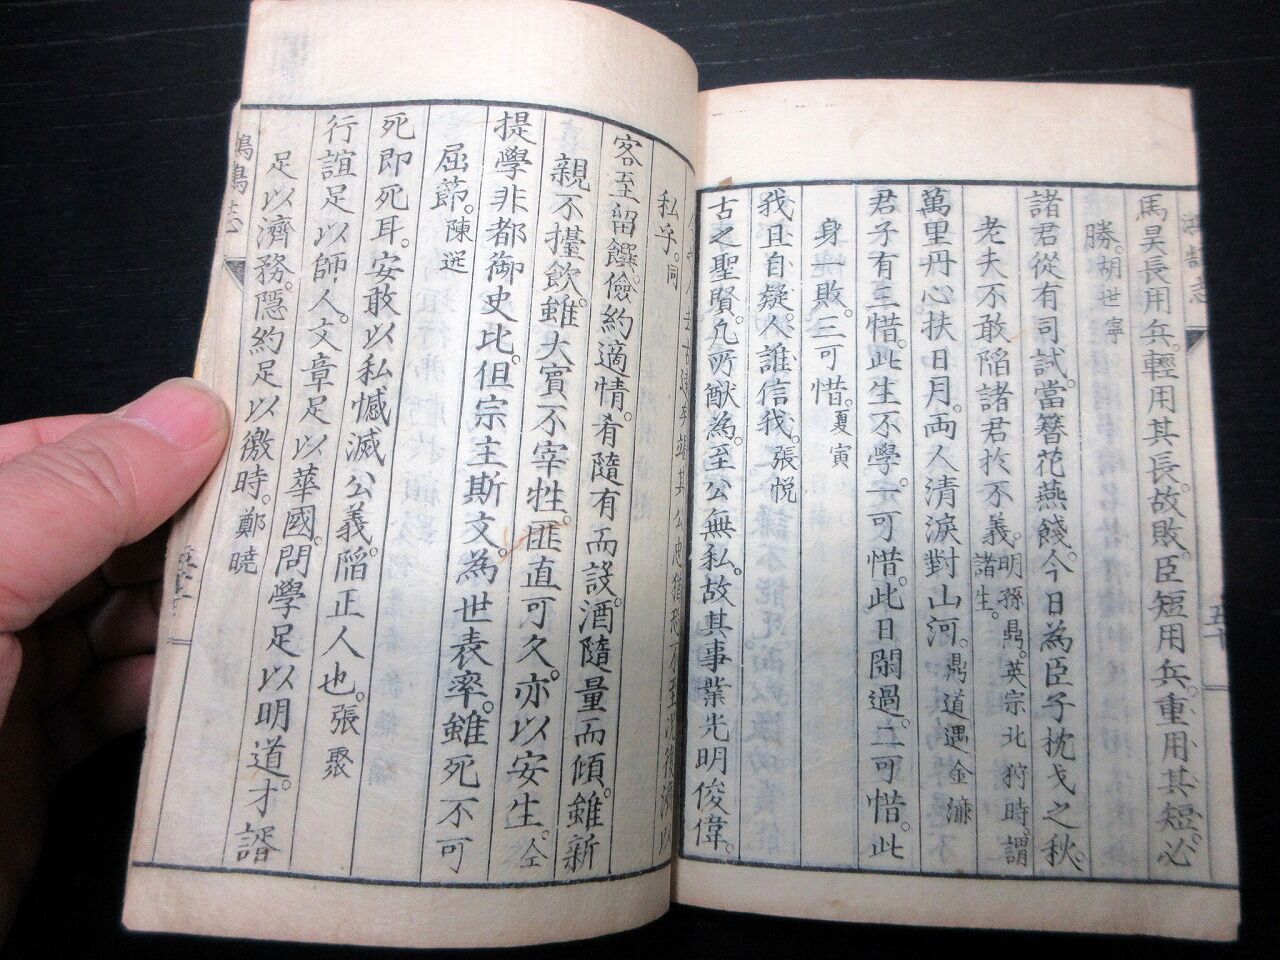 馬昊長用兵。輕用其長。故敗。臣短用兵。重用其短。必
勝。胡世寧
諸君從有司試。當簪花燕餞。今日為臣子枕戈之秋。
老夫不敢陷諸君於不義。明孫鼎。英宗北狩時。謂諸生。
萬里丹心扶日月。両人清淚對山河。鼎道遇金濂
君子有三惜。此生不學。一可惜。此日閑過。二可惜。此
身敗。三可惜。夏寅
我且自疑。人誰信我。張悅
古之聖賢。凢所猷為。至公無私。故其事業光明俊偉。
私乎。同
客至留饌。儉約適情。肴隨有而設。酒隨量而傾。雖新
親不擡飲。雖大賓不宰牲。匪直可久。亦以安生。仝
提學非都御史比。但宗主斯文。為世表率。雖死不可
屈節。陳選
死即死耳。安敢以私憾滅公義。陷正人也。張聚
行誼足以師人。文章足以華國。問學足以明道。才諝
足以濟務。隱約足以徼時。鄭曉